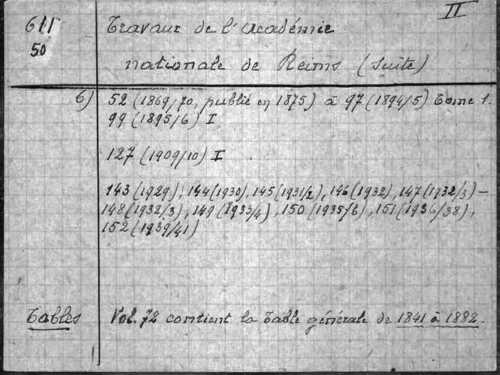 611 Travaux de l'Académie II
50 nationale de Reims (suite)
6) 52 (1869/70, publié en 1875) à 97 (1894/5) Tome 1.
99 (1895/6) I
127 (1909/10) I
143 (1929), 144 (1930), 145 (1931/2), 146 (1932), 147 (1932/3) –
148 (1932/3), 149 (1933/4), 150 (1935/6), 151 (1936/38),
152 (1939/41)
Tables Vol. 72 contient la Table générale de 1841 à 1882.